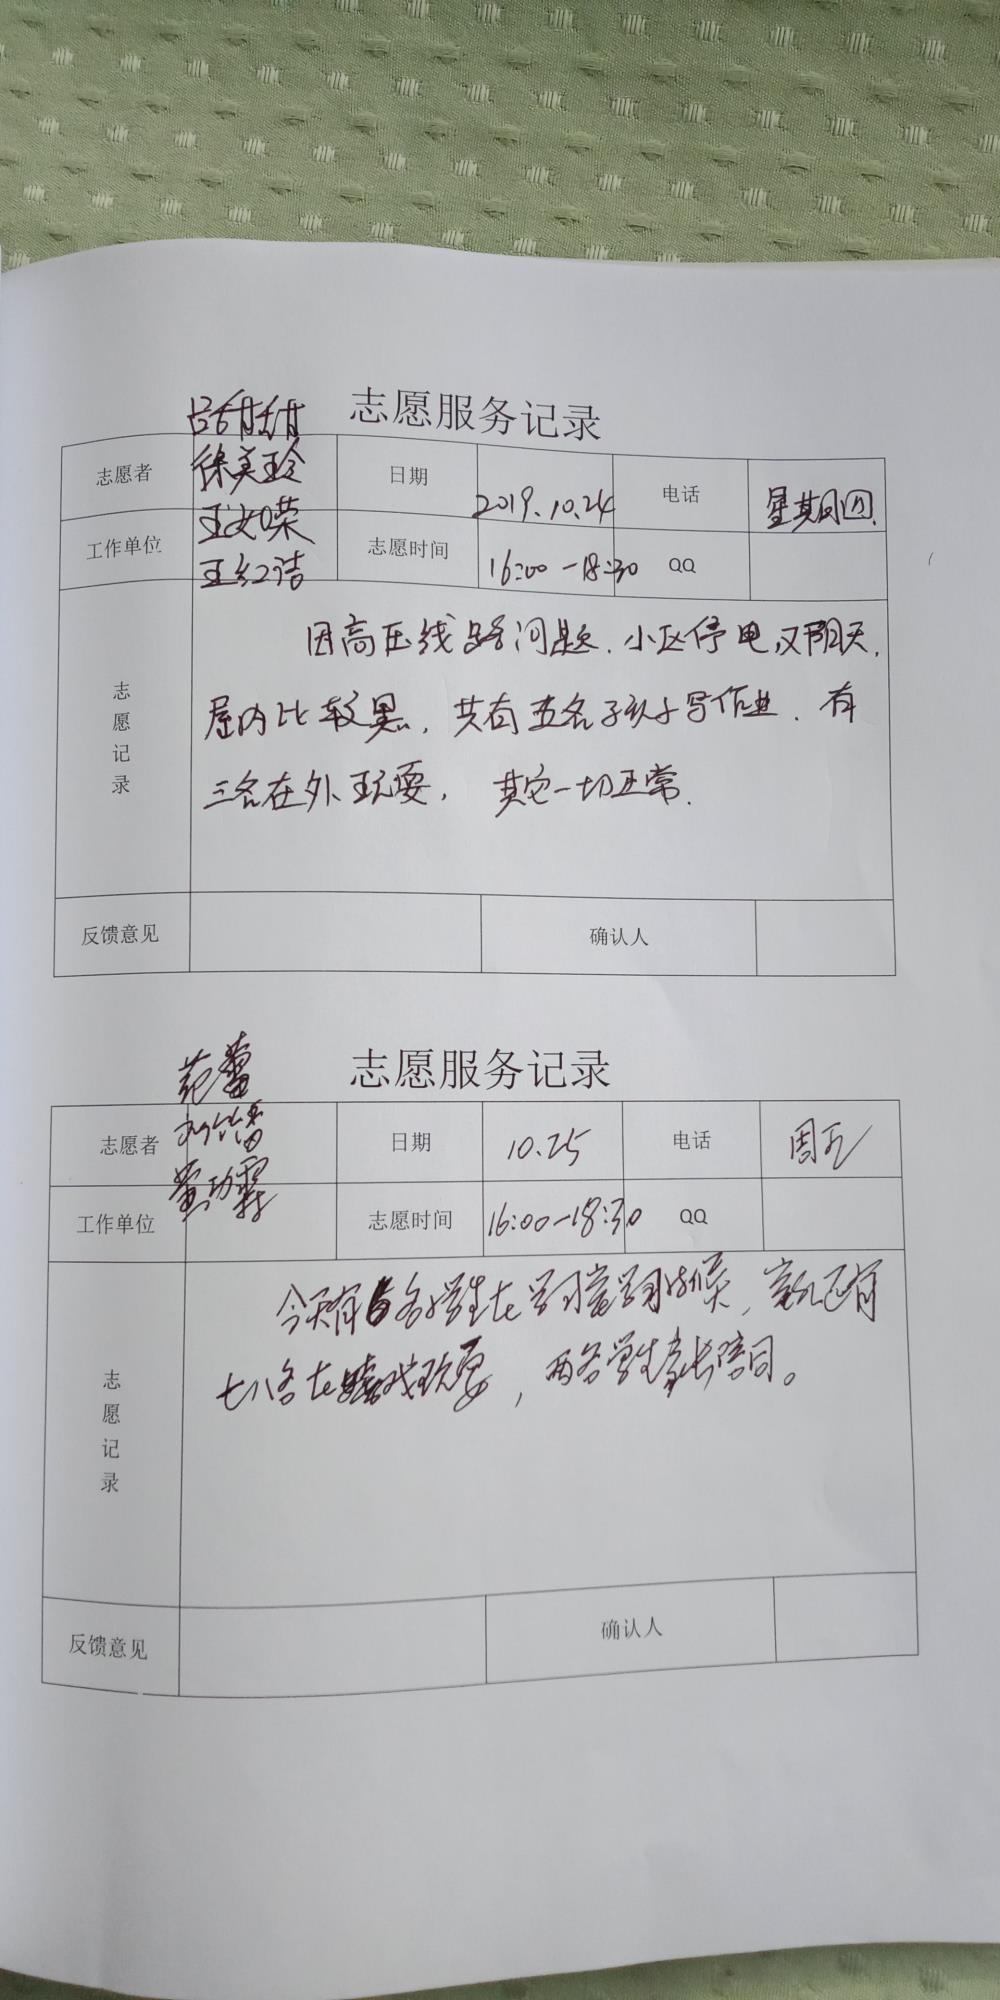 志愿服务记录
吕甜甜
志愿者 徐美玲 日期 2019.10.24 电话 星期四.
王如荣
工作单位 王红洁 志愿时间 16:00-18:30 QQ
志愿记录
因高压线路问题.小区停电,又阴天.
屋内比较黑,共有五名孩子写作业.有
三名在外玩耍,其它一切正常.
反馈意见 确认人
志愿服务记录
范蕾
志愿者 日期 10.25 电话 周五
董功霖
工作单位 志愿时间 16:00-18:30 QQ
志愿记录
今天有6名学生在学习堂学习,还有
七八名在嬉戏玩耍,两名学生家长陪同。
反馈意见 确认人